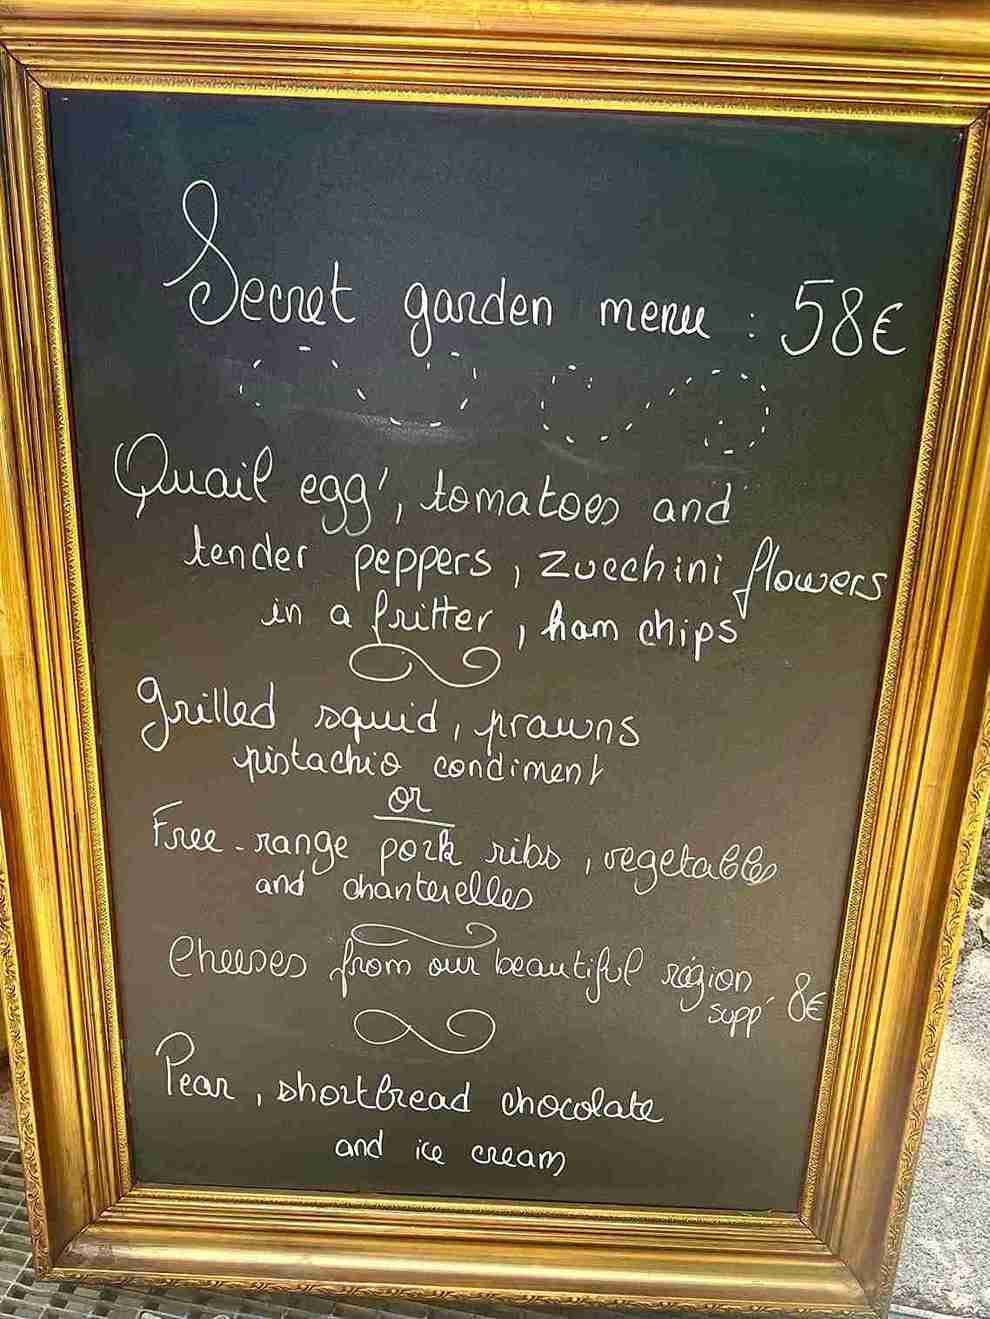 Secret garden menu : 58€
Quail egg', tomatoes and
tender peppers, zucchini flowers
in a fritter, ham chips
Grilled squid, prawns
pistachio condiment
or
Free-range pork ribs, vegetables
and chanterelles
Cheeses from our beautiful région
supp' 8€
Pear, shortbread chocolate
and ice cream